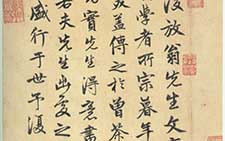 陵放翁先生文
學者所宗暮年
益傳之於曾茶
實先生得意書
若夫先生出處之
盛行于世予復